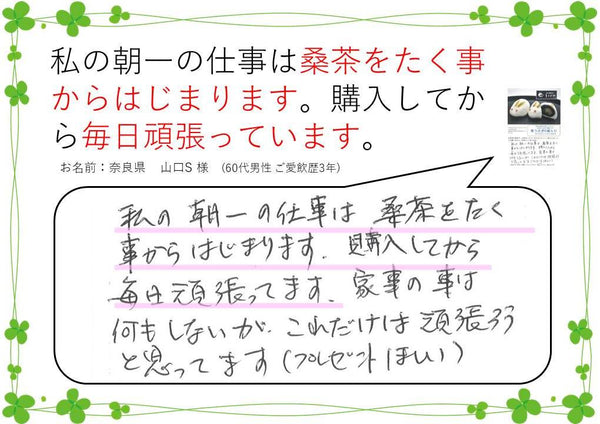 私の朝一の仕事は桑茶をたく事
からはじまります。購入してか
ら毎日頑張っています。
お名前：奈良県　山口S 様　(60代男性 ご愛飲歴3年)
私の朝一の仕事は桑茶をたく
事からはじまります。購入してから
毎日頑張ってます。家事の事は
何もしないが、これだけは頑張ろう
と思ってます(プレゼントほしい)